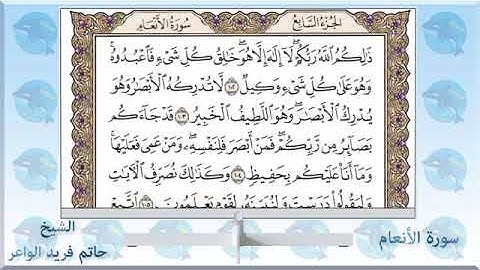 الجزء السابع
سورة الأنعام
ذَٰلِكُمُ ٱللَّهُ رَبُّكُمْ ۖ لَآ إِلَٰهَ إِلَّا هُوَ ۖ خَٰلِقُ كُلِّ شَىْءٍ فَٱعْبُدُوهُ ۚ
وَهُوَ عَلَىٰ كُلِّ شَىْءٍ وَكِيلٌ ١٠٢ لَّا تُدْرِكُهُ ٱلْأَبْصَٰرُ وَهُوَ
يُدْرِكُ ٱلْأَبْصَٰرَ ۖ وَهُوَ ٱللَّطِيفُ ٱلْخَبِيرُ ١٠٣ قَدْ جَآءَكُم
بَصَآئِرُ مِن رَّبِّكُمْ ۖ فَمَنْ أَبْصَرَ فَلِنَفْسِهِۦ ۖ وَمَنْ عَمِىَ فَعَلَيْهَا ۚ
وَمَآ أَنَا۠ عَلَيْكُم بِحَفِيظٍ ١٠٤ وَكَذَٰلِكَ نُصَرِّفُ ٱلْءَايَٰتِ
وَلِيَقُولُوا۟ دَرَسْتَ وَلِنُبَيِّنَهُۥ لِقَوْمٍ يَعْلَمُونَ ١٠٥ ٱتَّبِعْ
سورة الأنعام
الشيخ
حاتم فريد الواعر